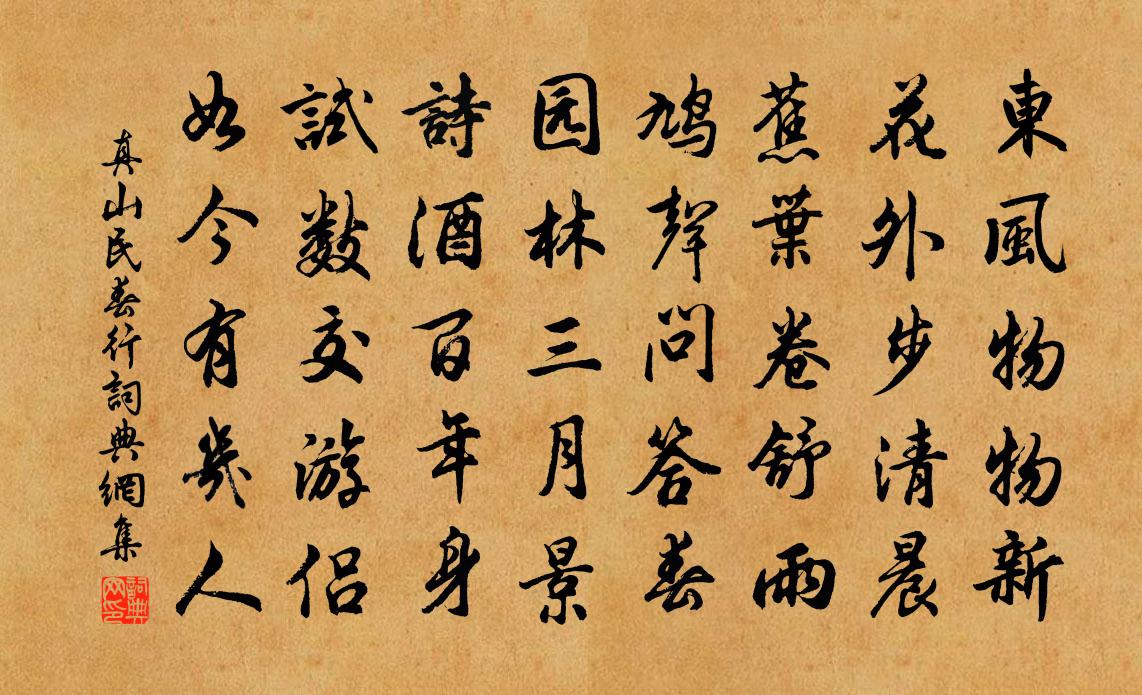 東風物物新
花外步清晨
蕉葉卷舒雨
鳩聲問答春
园林三月景
詩酒百年身
試數交游侶
如今有幾人
真山民春行詞典網集
詞典網印